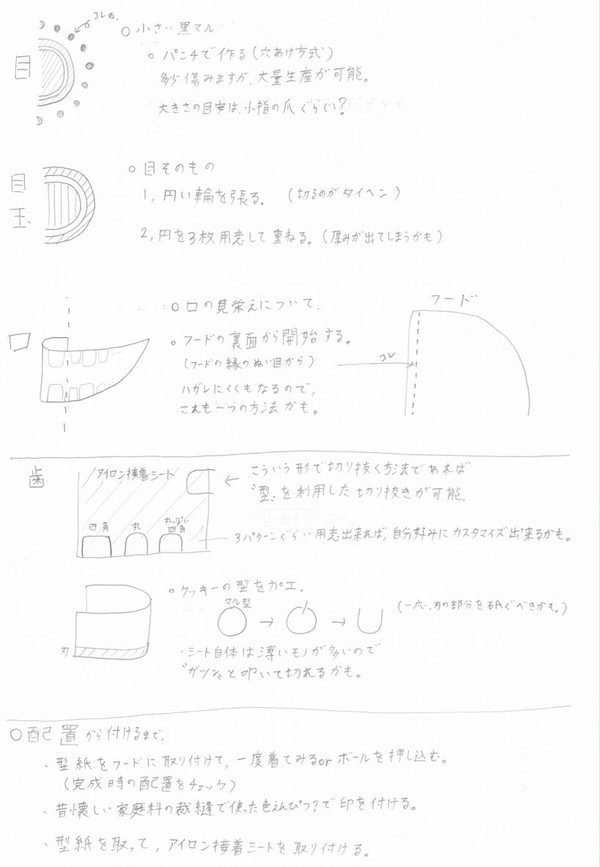 コレカ.
○ 小さい黒マル
目
○ パンチで作る(穴あけ方式)
多少傷みますが、大量生産が可能。
大きさの目安は、小指の爪ぐらい?
目玉
○ 目そのもの
1, 円い輪を張る. (切るのがタイヘン)
2, 円を3枚用意して重ねる。(厚みが出てしまうかも)
口
○ 口の見栄えについて.
フード
○ フードの裏面から開始する。
(フードの縁のぬい目から)
コレ
ハガレにくくもなるので,
これも一つの方法かも。
歯
アイロン接着シート
四角
丸
丸っぽい四角
← こういう形で切り抜く方法であれば
"型"を利用した切り抜きが可能.
3パターンぐらい用意出来れば,自分好みにカスタマイズ出来るかも。
○ クッキーの型を加工.
マル型
→ → (一応、刃の部分を研ぐべきかも。)
刃
・シート自体は薄いモノが多いので
"ガツン"と叩いて切れるかも。
○ 配置から付けるまで.
・型紙をフードに取り付けて,一度着てみるorボールを押し込む。
(完成時の配置をチェック)
・昔懐しい家庭科の裁縫で使った色えんぴつ?で印を付ける。
・型紙を取って,アイロン接着シートを取り付ける。